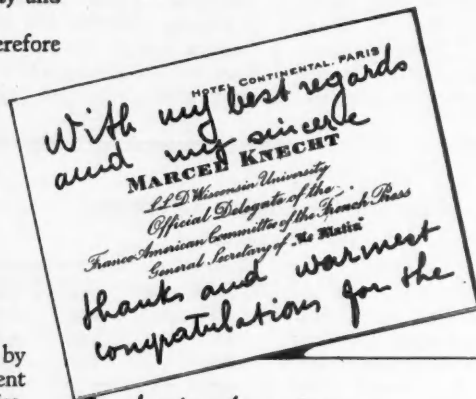 ty and
erefore
HOTEL CONTINENTAL, PARIS
With my best regards
and my sincere
MARCEL KNECHT
LL.D. Wisconsin University
Official Delegate of the
Franco-American Committee of the French Press
General Secretary of "Le Matin"
thanks and warmest
congratulations for the
by
ent